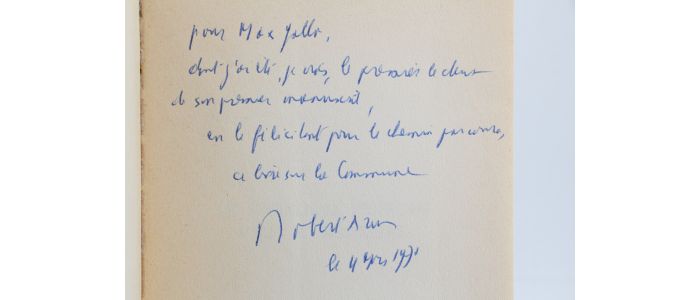 pour Max Gallo,
dont j'ai été, je crois, le premier lecteur
de son premier manuscrit,
en le félicitant pour le chemin parcouru,
ce livre sur la Commune
Robert Aron
le 4 Mars 1971